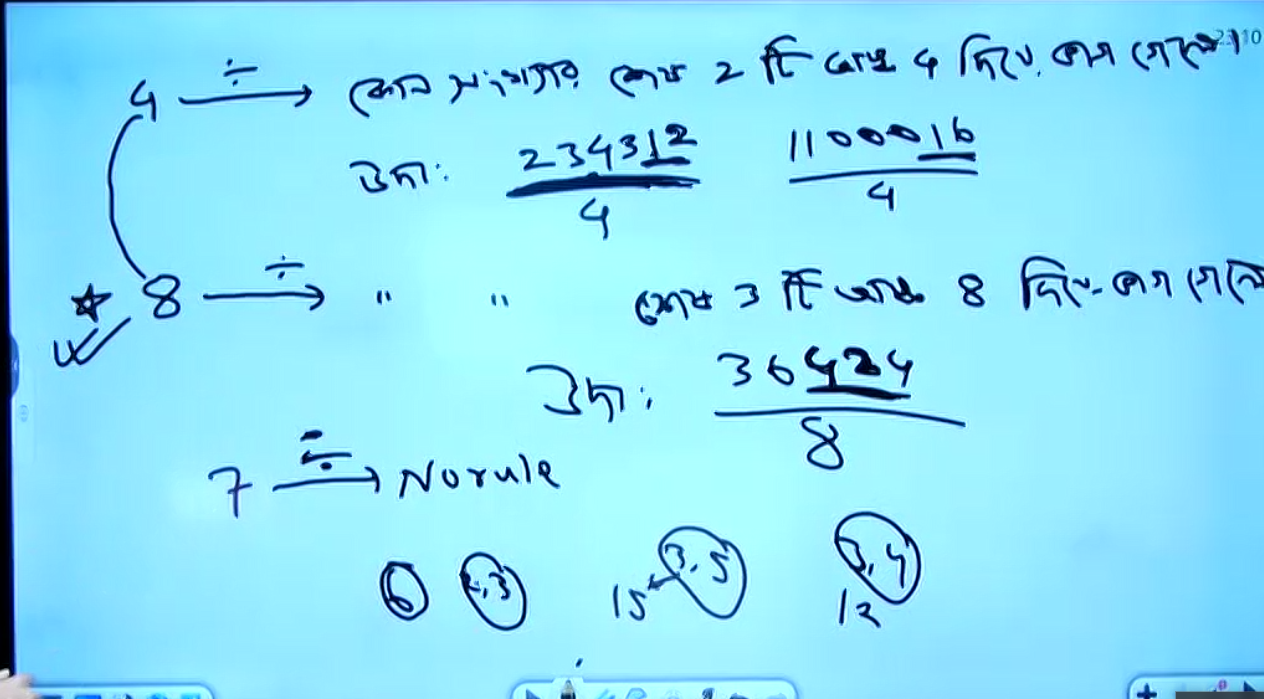 4 ÷→ কোন সংখ্যার শেষ 2 টি অংক 4 দিয়ে ভাগ গেলে।
উদা: 234312/4 1100016/4
8 ÷→ " " শেষ 3 টি অংক 8 দিয়ে ভাগ গেলে
উদা: 36424/8
7 ÷→ No rule
6 2,3 15 ← 3, 5 3, 4
12